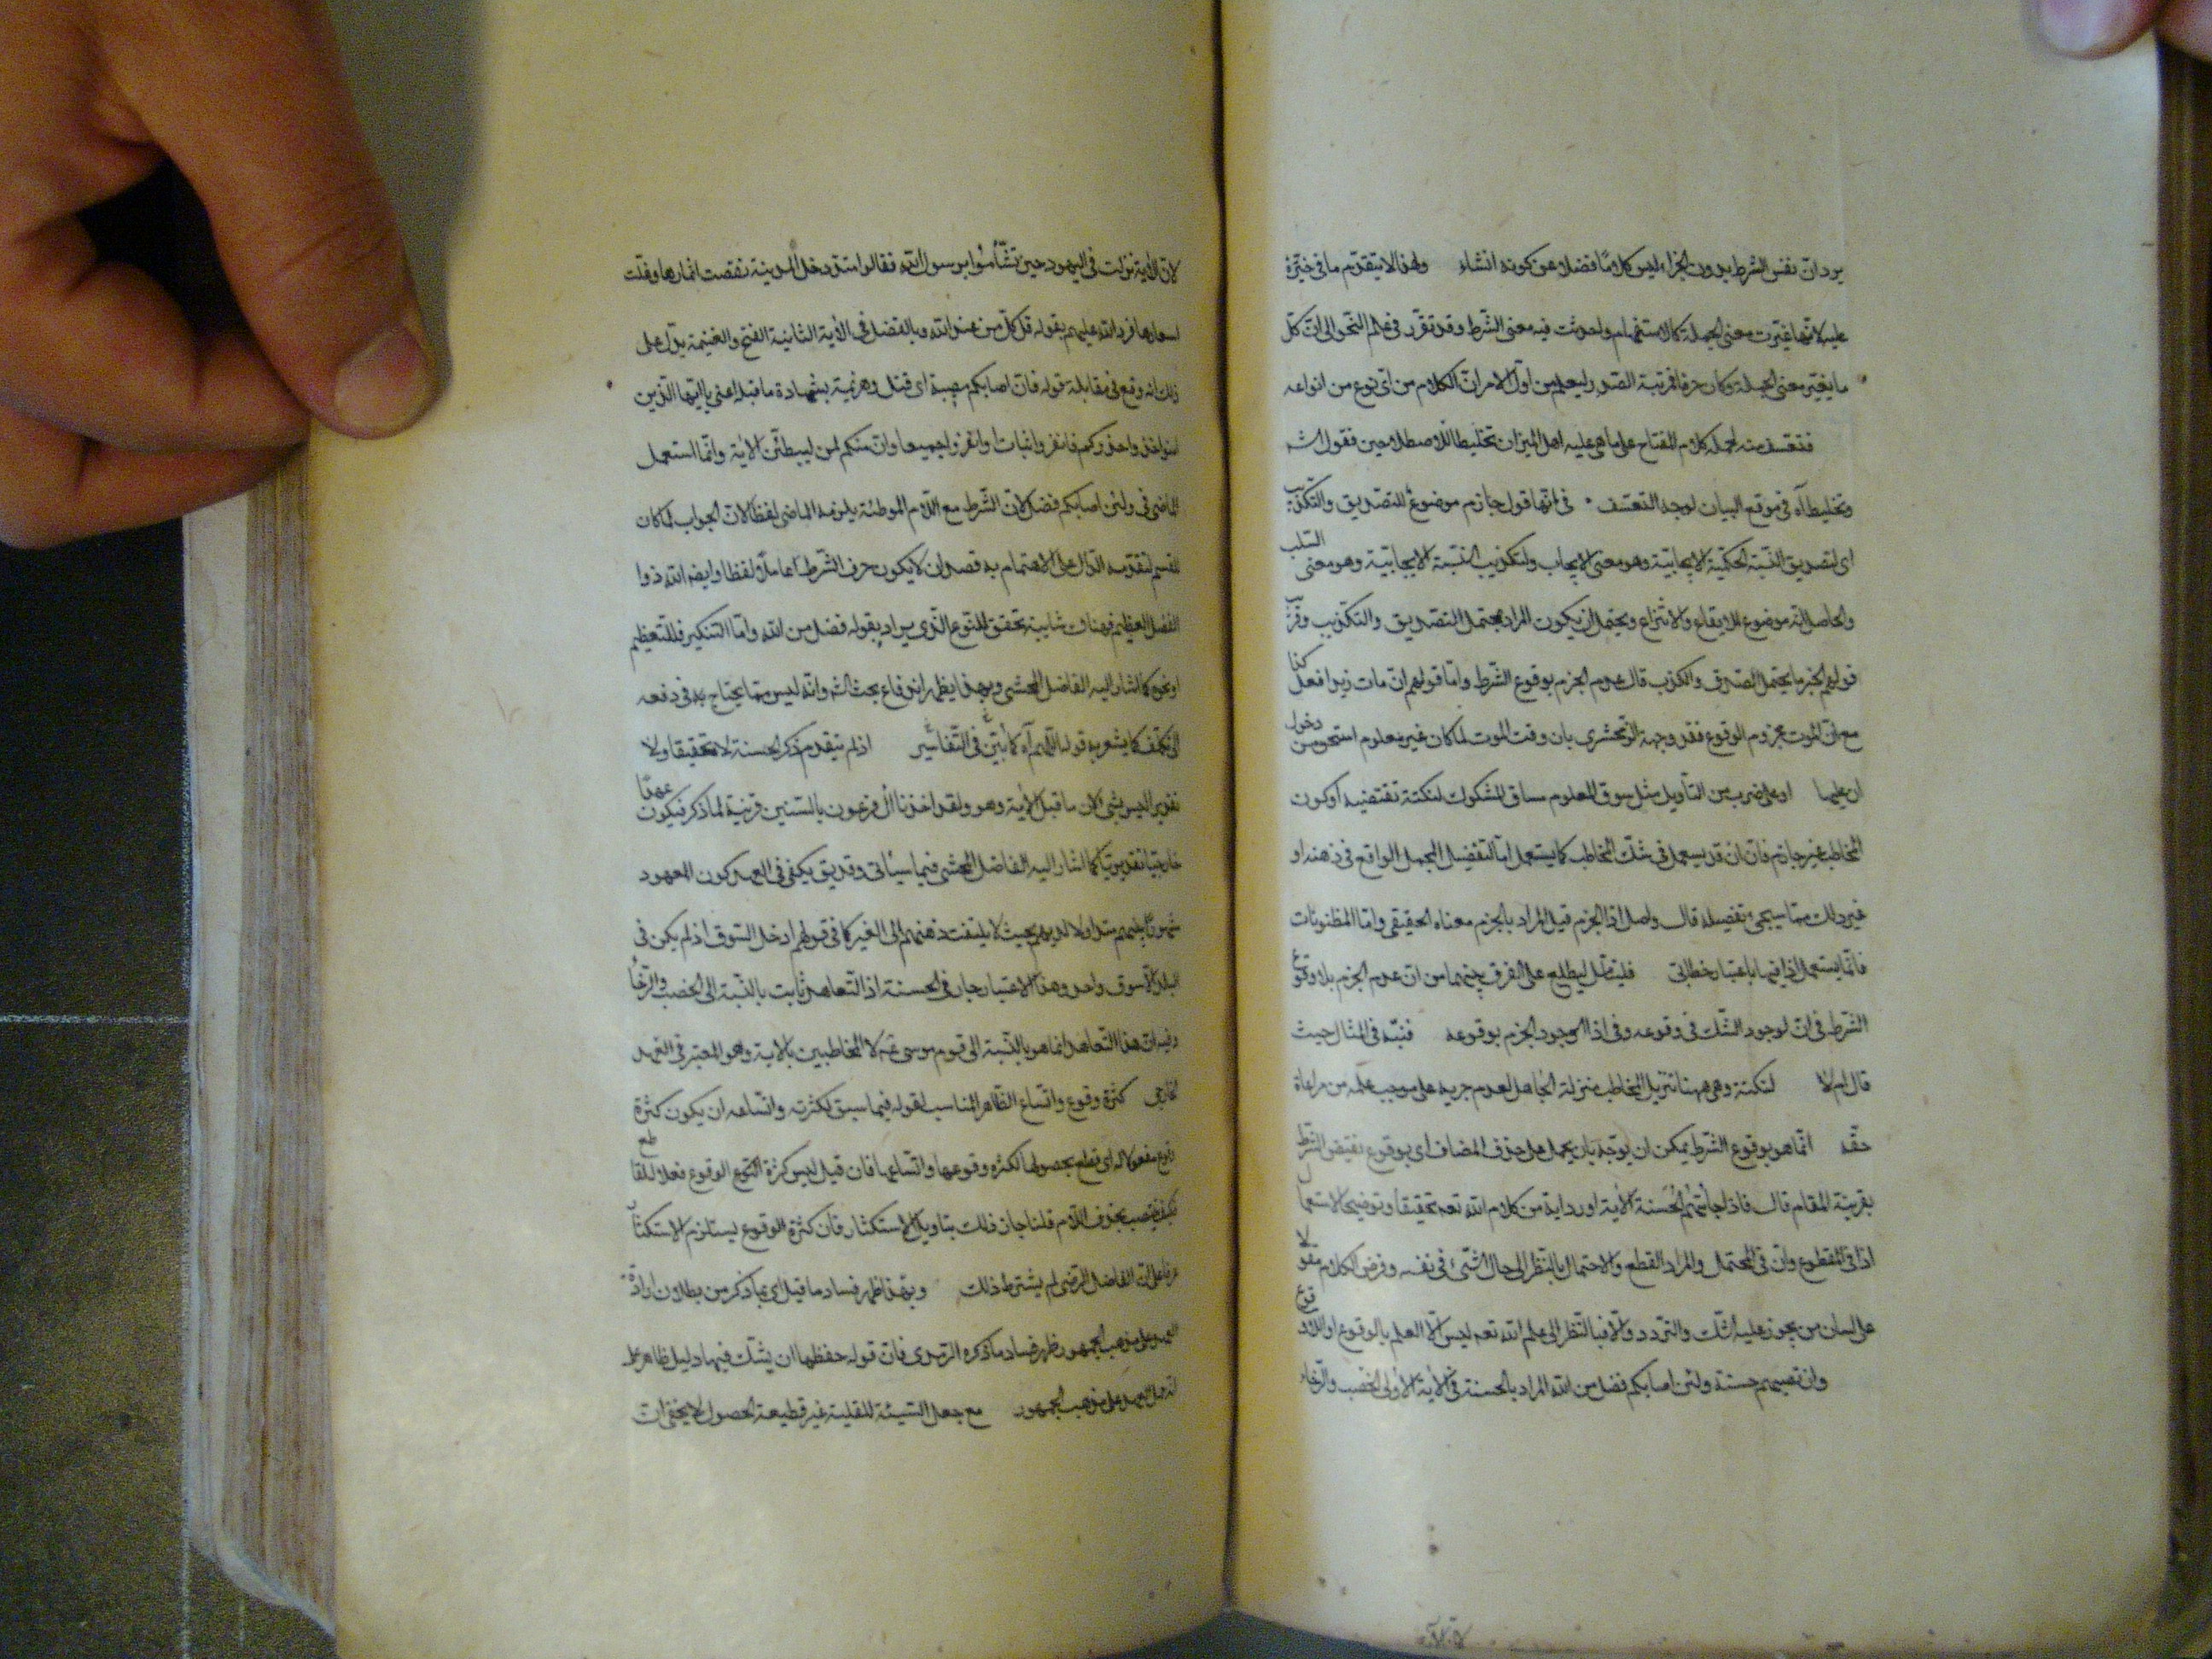 يرد ان نفس الشرط بدون الجزاء ليس كلاما فضلا عن كونه انشاء ولهذا لا يتقدم ما في حيزه
عليه لانها غيرت معنى الجملة كالاستفهام واحدثت فيه معنى الشرط وقد تقرر في علم النحو ان كل
ما يغير معنى الجملة وكان حرفا فمرتبة الصدر ليعلم من اول الامر ان الكلام من اي نوع من انواعه
فتعسف منه لحمله كلام المفتاح على ما هي عليه اهل الميزان تخليطا للاصطلاحين فقول الشـ
وتخليط آه في موقع البيان لوجه التعسف في انها قول جازم موضوع للتصديق والتكذيب
اي لتصديق النسبة الحكمية الايجابية وهو معنى الايجاب ولتكذيب النسبة الايجابية وهو معنى السلب
والحاصل انه موضوع للايقاع والانتزاع ويحتمل ان يكون المراد محتمل التصديق والتكذيب
قولهم الخبر ما يحتمل الصدق والكذب قال عدم الجزم بوقوع الشرط واما قولهم ان مات زيد افعل كذا
مع ان الموت مجزوم الوقوع فقد وجهه الزمخشري بان وقت الموت لما كان غير معلوم استحسن دخول
ان عليها او على ضرب من التأويل مثل سوق المعلوم مساق المشكوك لنكتة تقتضيه او كون
المخاطب غير جازم فان ان قد يستعمل في شك المخاطب كما يستعمل اما لتفصيل المجمل الواقع في ذهنه او
غير ذلك مما سيجيء تفصيله قال واصل اذا الجزم قيل المراد بالجزم معناه الحقيقي واما المظنونات
فانما يستعمل اذا فيها باعتبار خطابي فليتأمل ليطلع على الفرق بينهما من ان عدم الجزم بلا وقوع
الشرط في ان لوجود الشك في وقوعه وفي اذا لوجود الجزم بوقوعه فنبه في المثال حيث
قال ام لا لنكتة وهي ههنا تنزيل المخاطب منزلة الجاهل لعدم جريه على موجب علمه من مراعاة
حقه انما هو بوقوع الشرط يمكن ان يوجه بان يحمل على حذف المضاف اي بوقوع نقيض الشرط
بقرينة المقام قال فاذا جاءتهم الحسنة الآية اورد آية من كلام الله تعه تحقيقا وتوضيحا لاستعمال
اذا في المقطوع وان في المحتمل والمراد القطع والاحتمال بالنظر الى حال الشيء في نفسه وفرض الكلام مقولا
على لسان من يجوز عليه الشك والتردد والا فبالنظر الى علم الله تعه ليس الا العلم بالوقوع او اللاوقوع
وان تصبهم حسنة ولئن اصابكم فضل من الله المراد بالحسنة في الآية الاولى الخصب والرخاء
لان الآية
لان الآية نزلت في اليهود حين تشأموا برسول الله فقالوا منذ دخل المدينة نقصت اثمارها وغلت
اسعارها فرد الله عليهم بقوله قل كل من عند الله وبالفضل في الآية الثانية الفتح والغنيمة يدل على
ذلك انه وقع في مقابلة قوله فان اصابكم مصيبة اي قتل وهزيمة بشهادة ما قبله اعني يا ايها الذين
امنوا خذوا حذركم فانفروا ثبات او انفروا جميعا وان منكم لمن ليبطئن الآية وانما استعمل
الماضي في ولئن اصابكم فضل لان الشرط مع اللام الموطئة يلزمه الماضي لفظا لان الجواب لما كان
للقسم لتقدمه الدال على الاهتمام به قصد ان لا يكون حرف الشرط عاملا لفظا وايضا الله ذوا
الفضل العظيم فهناك شايبة تحقق للنوع الذي يراد بقوله فضل من الله واما التنكير فللتعظيم
او نحوه كما اشار اليه الفاضل المحشي وبهذا يظهر اندفاع بحث الشـ وانه ليس مما يحتاج في دفعه
الى تكلف كما يشعر به قوله اللهم آه كما بين في التفاسير اذ لم يتقدم ذكر الحسنة لا تحقيقا ولا
تقديرا ليس بشيء لان ما قبل الآية وهو ولقد اخذنا آل فرعون بالسنين قرينة لما ذكر فيكون عهدا
خارجيا تقديريا كما اشار اليه الفاضل المحشي فيما سيأتي وقد يق يكفي في العهد كون المعهود
بحيث لا يلتفت ذهنهم الى الغير كما في قولهم ادخل السوق اذ لم يكن في
البلد الا سوق واحد وهذا الاعتبار جار في الحسنة اذ التعاهد ثابت بالنسبة الى الخصب والرخاء
وفيه ان هذا التعاهد انما هو بالنسبة الى قوم موسى عم لا المخاطبين بالآية وهو المعتبر في العهد
الخارجي كثرة وقوع واتساع الظاهر المناسب لقوله فيما سبق لكثرته واتساعه ان يكون كثرة
وقوع مفعولا له اي قطع بحصولها لكثرة وقوعها واتساعها فان قيل ليس كثرة النوع الوقوع فعلا للقاطع
فكيف نصب بحذف اللام قلنا جاز ذلك بتاويل الاستكثار فان كثرة الوقوع يستلزم الاستكثار
عرفا على ان الفاضل الرضي لم يشترط ذلك وبهذا ظهر فساد ما قيل اي بما ذكر من بطلان ارادة
العهد على مذهب الجمهور ظهر فساد ما ذكره الترمذي فان قوله حفظها ان يشك فيها دليل ظاهر على
انه حمل العهد على مذهب الجمهور مع جعل السيئة للقلية غير قطيعة الحصول لا يخفى ان